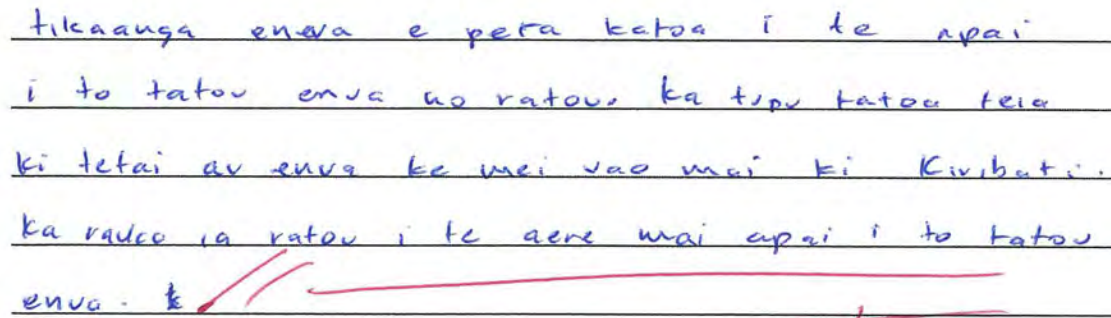 tikaanga enera e pera katoa i te apai
i to tatou enua no ratou. ka tupu katoa teia
ki tetai au enua ke mei vao mai ki Kiribati.
ka rauka ia ratou i te aere mai apai i to tatou
enua. t